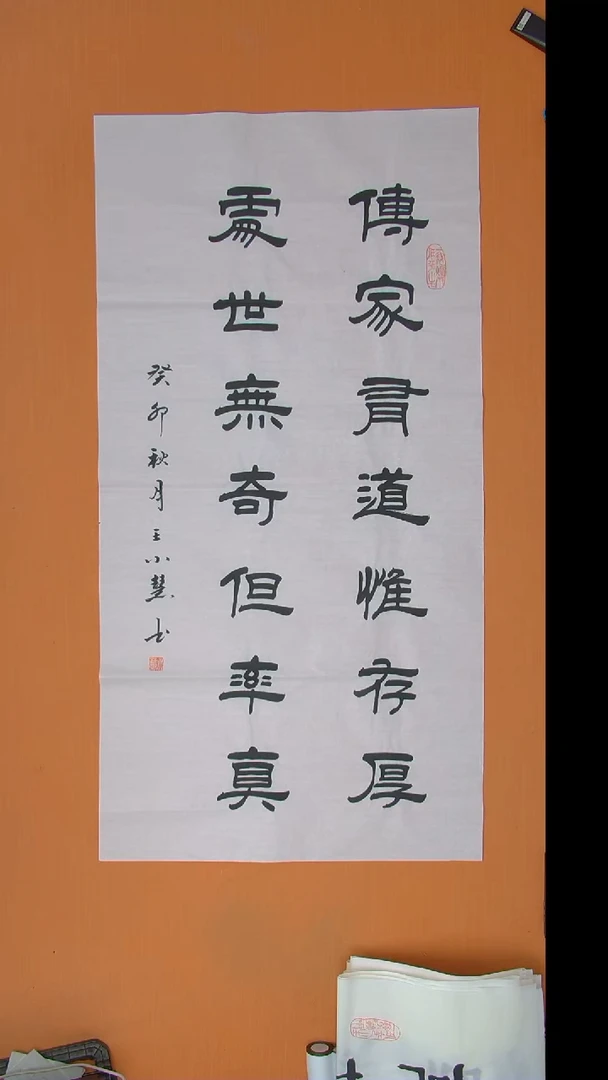 傳家有道惟存厚
處世無奇但率真
癸卯秋月王小慧书